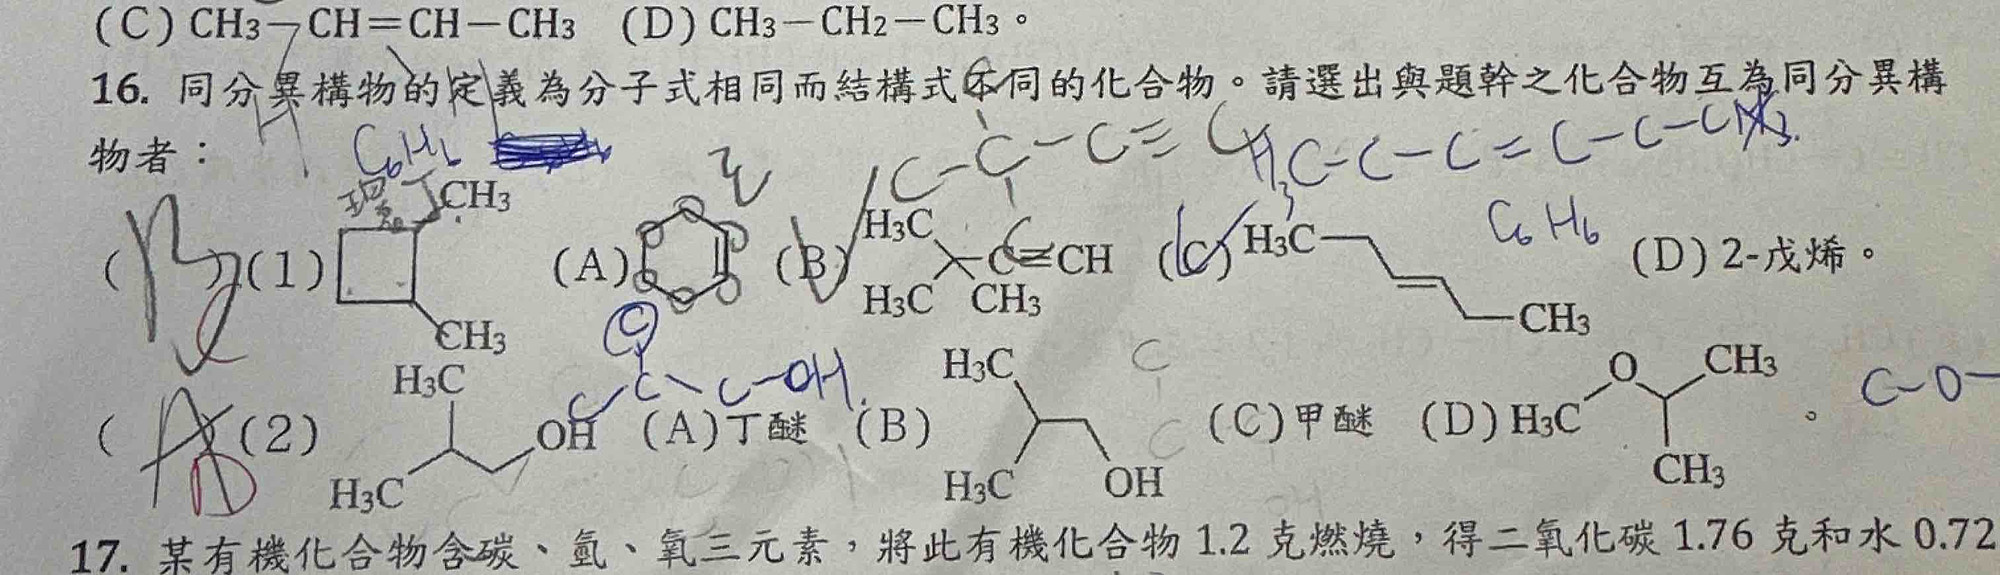 (C) CH₃－CH＝CH－CH₃ (D) CH₃－CH₂－CH₃。
16. 同分異構物的定義為分子式相同而結構式不同的化合物。請選出與題幹之化合物互為同分異構
物者：
C₆H₆
C－C－C≡C
H₃C－C－C＝C－C－CH₃.
環丁
C
C₆H₆
( B ) C (1) CH₃ CH₃ (A) (B) H₃C H₃C CH₃ C≡CH (C) H₃C CH₃ (D) 2-戊烯。
C
C C C－OH
C
C
( A ) D (2) H₃C H₃C OH (A) 丁醚 (B) H₃C H₃C OH (C) 甲醚 (D) H₃C O CH₃ CH₃ 。 C－O－
17. 某有機化合物含碳、氫、氧三元素，將此有機化合物 1.2 克燃燒，得二氧化碳 1.76 克和水 0.72